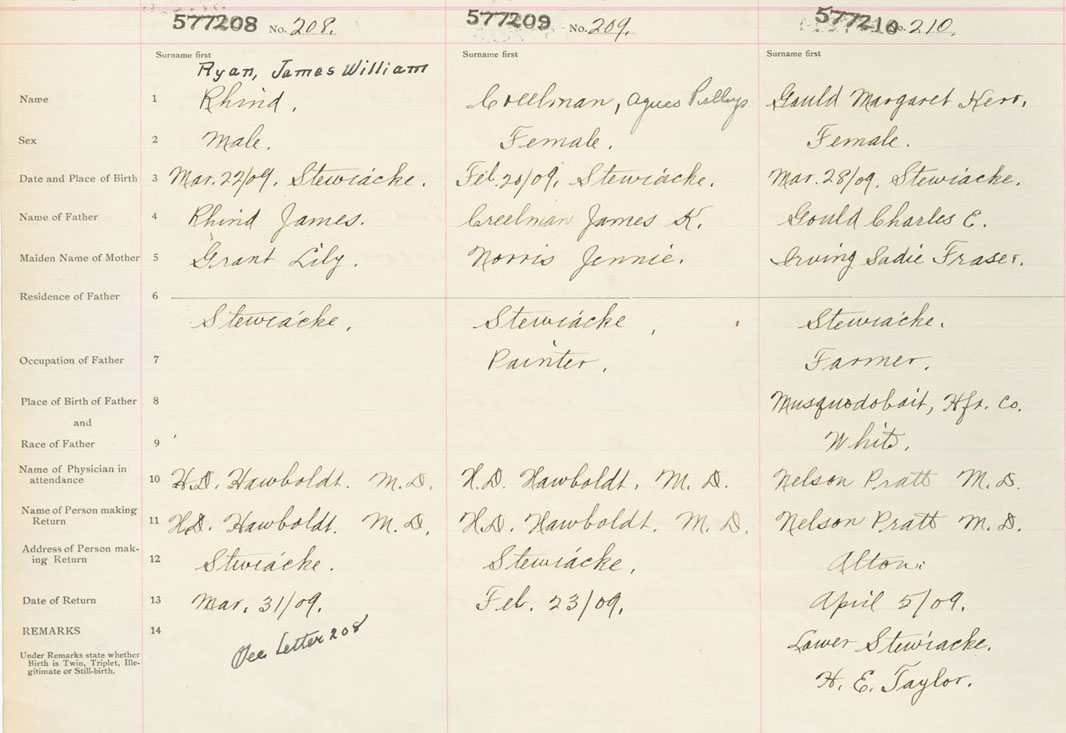 577208 No. 208. 577209 No. 209. 577210 No. 210.
Surname first Surname first Surname first
Ryan, James William
Name 1 Rhind. Creelman, Agnes Gould Margaret Kerr.
Sex 2 Male. Female. Female.
Date and Place of Birth 3 Mar. 22/09. Stewiacke. Feb. 20/09. Stewiacke. Mar. 28/09. Stewiacke.
Name of Father 4 Rhind James. Creelman James K. Gould Charles E.
Maiden Name of Mother 5 Grant Lily. Norris Jennie. Irving Sadie Fraser.
Residence of Father 6
Stewiacke. Stewiacke, Stewiacke.
Occupation of Father 7 Painter. Farmer.
Place of Birth of Father 8 Musquodobait, Hfx. Co.
and
Race of Father 9 White.
Name of Physician in
attendance 10 H.D. Hawboldt. M.D. H.D. Hawboldt. M.D. Nelson Pratt M.D.
Name of Person making
Return 11 H.D. Hawboldt. M.D. H.D. Hawboldt. M.D. Nelson Pratt M.D.
Address of Person mak-
ing Return 12 Stwiacke. Stewiacke. Alton.
Date of Return 13 Mar. 31/09. Feb. 23/09. April 5/09.
REMARKS 14 See Letter 208 Lower Stewiacke.
Under Remarks state whether
Birth is Twin, Triplet, Ille-
gitimate or Still-birth.
H. E. Taylor.